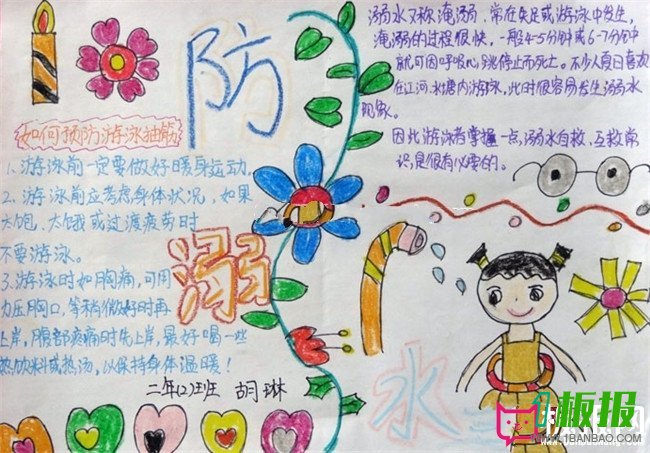 防
溺
水
如何预防游泳抽筋
1、游泳前一定要做好暖身运动。
2、游泳前应考虑身体状况，如果
太饱、太饿或过渡疲劳时
不要游泳。
3.游泳时如胸痛，可用
力压胸口，等稍微好时再
上岸，腹部疼痛时先上岸，最好喝一些
热饮料或热汤，以保持身体温暖！
二年(2)班 胡琳
溺水又称淹溺，常在失足或游泳中发生，
淹溺的过程很快，一般4-5分钟或6-7分钟
就可因呼吸心跳停止而死亡。不少人夏日喜欢
在江河、水塘内游泳，此时很容易发生溺水
现象。
因此游泳者掌握一点溺水自救，互救常
识是很有必要的。
1板报
L1BANBAO.COM